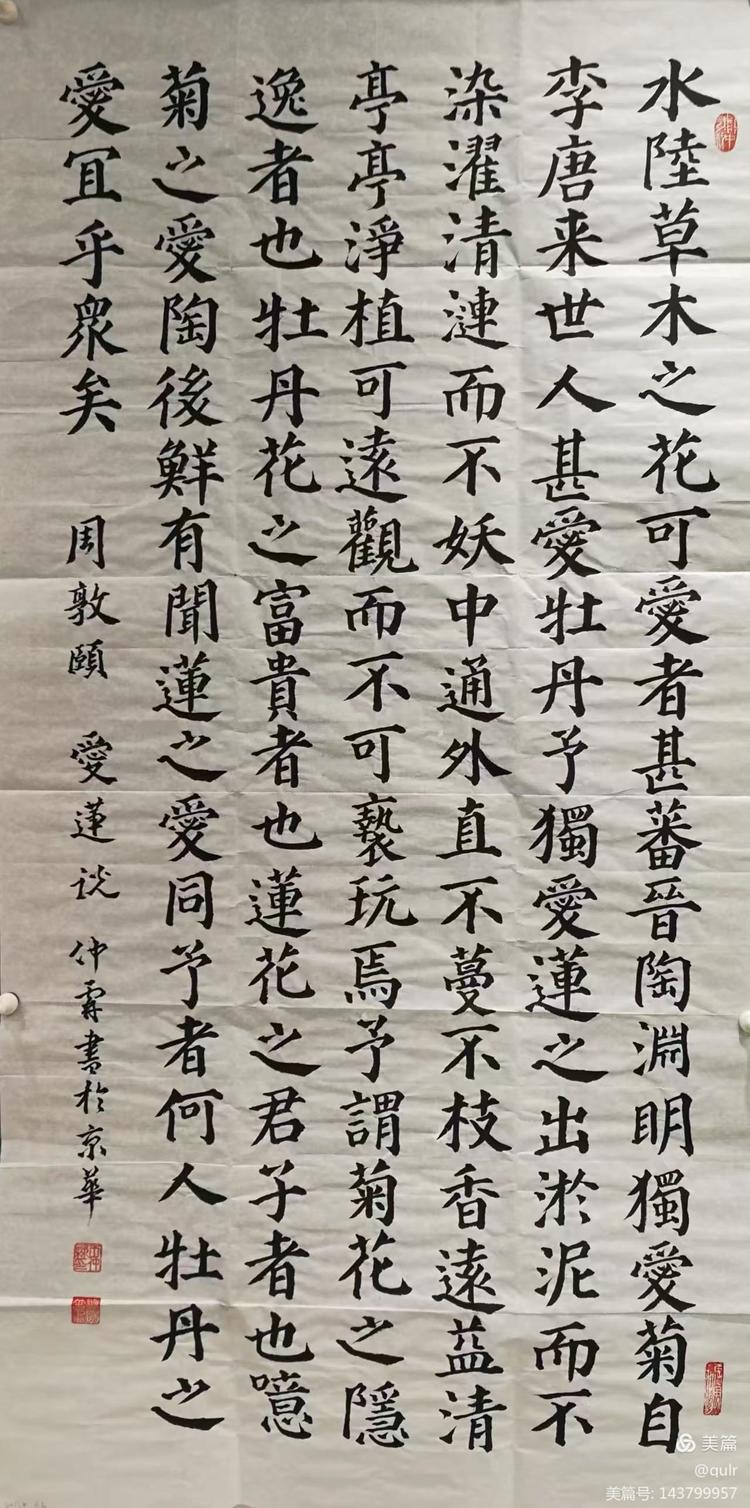 水陸草木之花可愛者甚蕃晉陶淵明獨愛菊自
李唐来世人甚愛牡丹予獨愛蓮之出淤泥而不
染濯清漣而不妖中通外直不蔓不枝香遠益清
亭亭淨植可遠觀而不可褻玩焉予謂菊花之隱
逸者也牡丹花之富貴者也蓮花之君子者也噫
菊之愛陶後鮮有聞蓮之愛同予者何人牡丹之
愛冝乎衆矣
周敦頤 愛蓮説 仲霖書於京華
美篇
@qulr
美篇号: 143799957